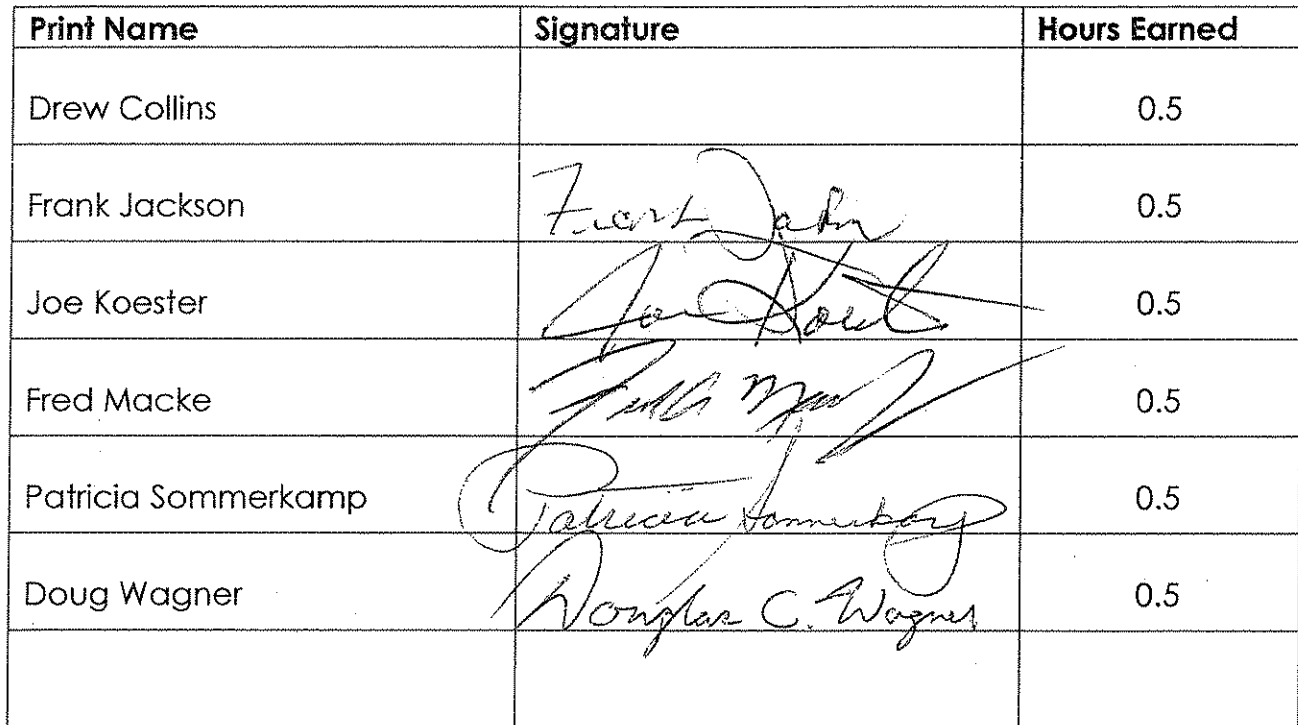 Print Name Signature Hours Earned
Drew Collins 0.5
Frank Jackson Frank Jackson 0.5
Joe Koester Joe Koester 0.5
Fred Macke 0.5
Patricia Sommerkamp Patricia Sommerkamp 0.5
Doug Wagner Douglas C. Wagner 0.5